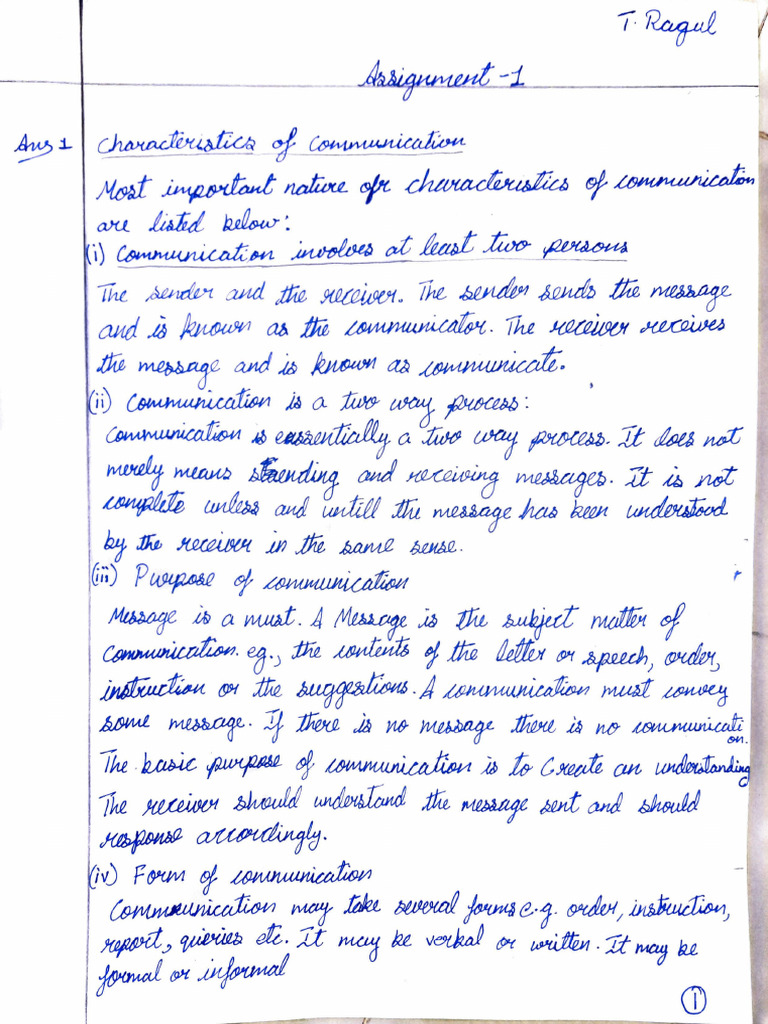 T. Ragul
Assignment -1
Ans 1 Characteristics of Communication
Most important nature ofr characteristics of communication
are listed below:
(i) Communication involves at least two persons
The sender and the receiver. The sender sends the message
and is known as the communicator. The receiver receives
the message and is known as communicate.
(ii) Communication is a two way process:
Communication is essentially a two way process. It does not
merely means sending and receiving messages. It is not
complete unless and untill the message has been understood
by the receiver in the same sense.
(iii) Purpose of communication
Message is a must. A Message is the subject matter of
communication. eg., the contents of the letter or speech, order,
instruction or the suggestions. A communication must convey
some message. If there is no message there is no communication.
The basic purpose of communication is to Create an understanding
The receiver should understand the message sent and should
response accordingly.
(iv) Form of communication
Communication may take several forms e.g. order, instruction,
report, queries etc. It may be verbal or written. It may be
formal or informal
1